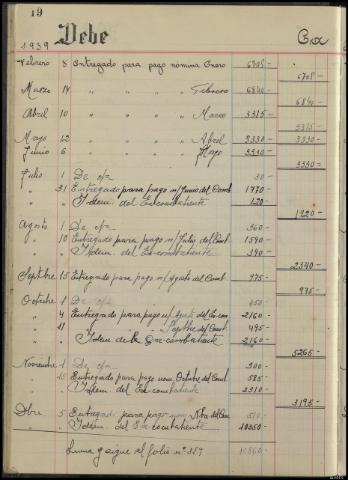 19
1939 Debe
Febrero 8 Entregado para pago nómina Enero 6705-
6705-
Marzo 14 " " " " Febrero 6840-
6840-
Abril 10 " " " " Marzo 3315-
3315-
Mayo 12 " " " " Abril 3330- 3330-
Junio 6 " " " " Mayo 3330-
3330-
Julio 1 De c/a 30-
" 31 Entregado para pago n/ Junio del Comb. 1770-
" " Idem. del Excombatiente 120-
1920-
Agosto 1 De c/a 360-
" 10 Entregado para pago n/ Julio del Comb. 1590-
" " Idem. del Ex-combatiente 390-
2340-
Septbre 15 Entregado para pago n/ Agosto del Comb. 975-
975-
Octubre 1 De c/a 450-
" 4 Entregado para pago n/ Agost. del Ex-com 2160-
" 11 " " " " Septbre del Comb 495-
" " Idem del Ex-combatiente 2160-
5265-
Noviembre 1 De c/a 300-
" 15 Entregado para pago nom. Octubre del Comb. 585-
" " Idem. del Ex-combatiente 2310-
3195-
Dbre 5 Entregado para pago nom. Nbre del Com 510-
" " Idem. del Excombatiente 10050-
Suma y sigue al folio nº 10560-